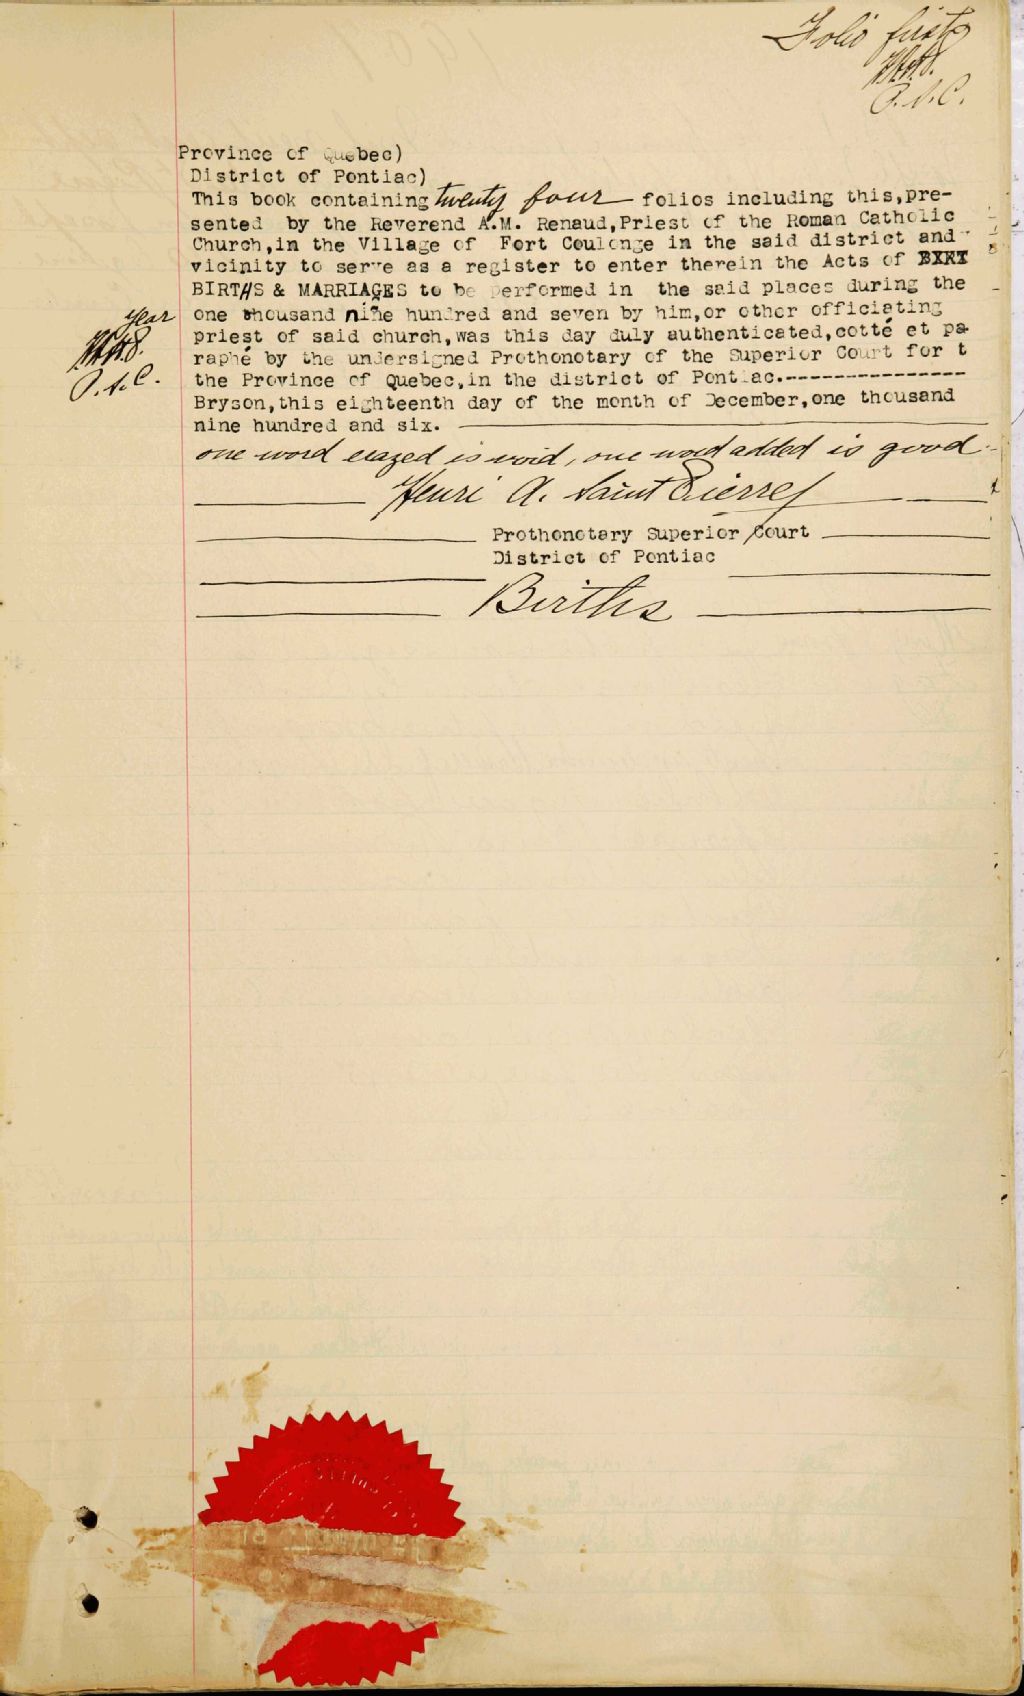 Folio first
P.S.C.
Province of Quebec)
District of Pontiac)
This book containing twenty four folios including this,pre-
sented by the Reverend A.M. Renaud,Priest of the Roman Catholic
Church,in the Village of Fort Coulonge in the said district and
vicinity to serve as a register to enter therein the Acts of BIRT
BIRTHS & MARRIAGES to be performed in the said places during the
year
one thousand nine hundred and seven by him,or other officiating
priest of said church,was this day duly authenticated,cotté et pa-
raphé by the undersigned Prothonotary of the Superior Court for t
P.S.C.
the Province of Quebec,in the district of Pontiac.----------------
Bryson,this eighteenth day of the month of December,one thousand
nine hundred and six.
one word erazed is void, one word added is good
Henri A. Saint Pierre
Prothonotary Superior Court
District of Pontiac
Births